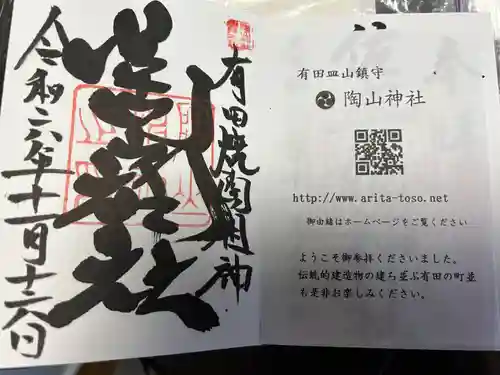 有田焼陶祖神
令和六年十一月十六日
有田皿山鎮守
陶山神社
http://www.arita-toso.net
御由緒はホームページをご覧ください
ようこそ御参拝くださいました。
伝統的建造物の建ち並ぶ有田の町並
も是非お楽しみください。